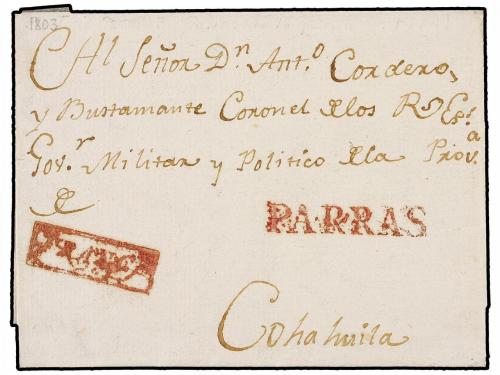 1803
Al Señor Dn. Anto. Cordero,
y Bustamante Coronel de los Rs. Exs.
Gov.r Militar y Politico de la Prov.a
de
PARRAS
FRANCO
Cohahuila